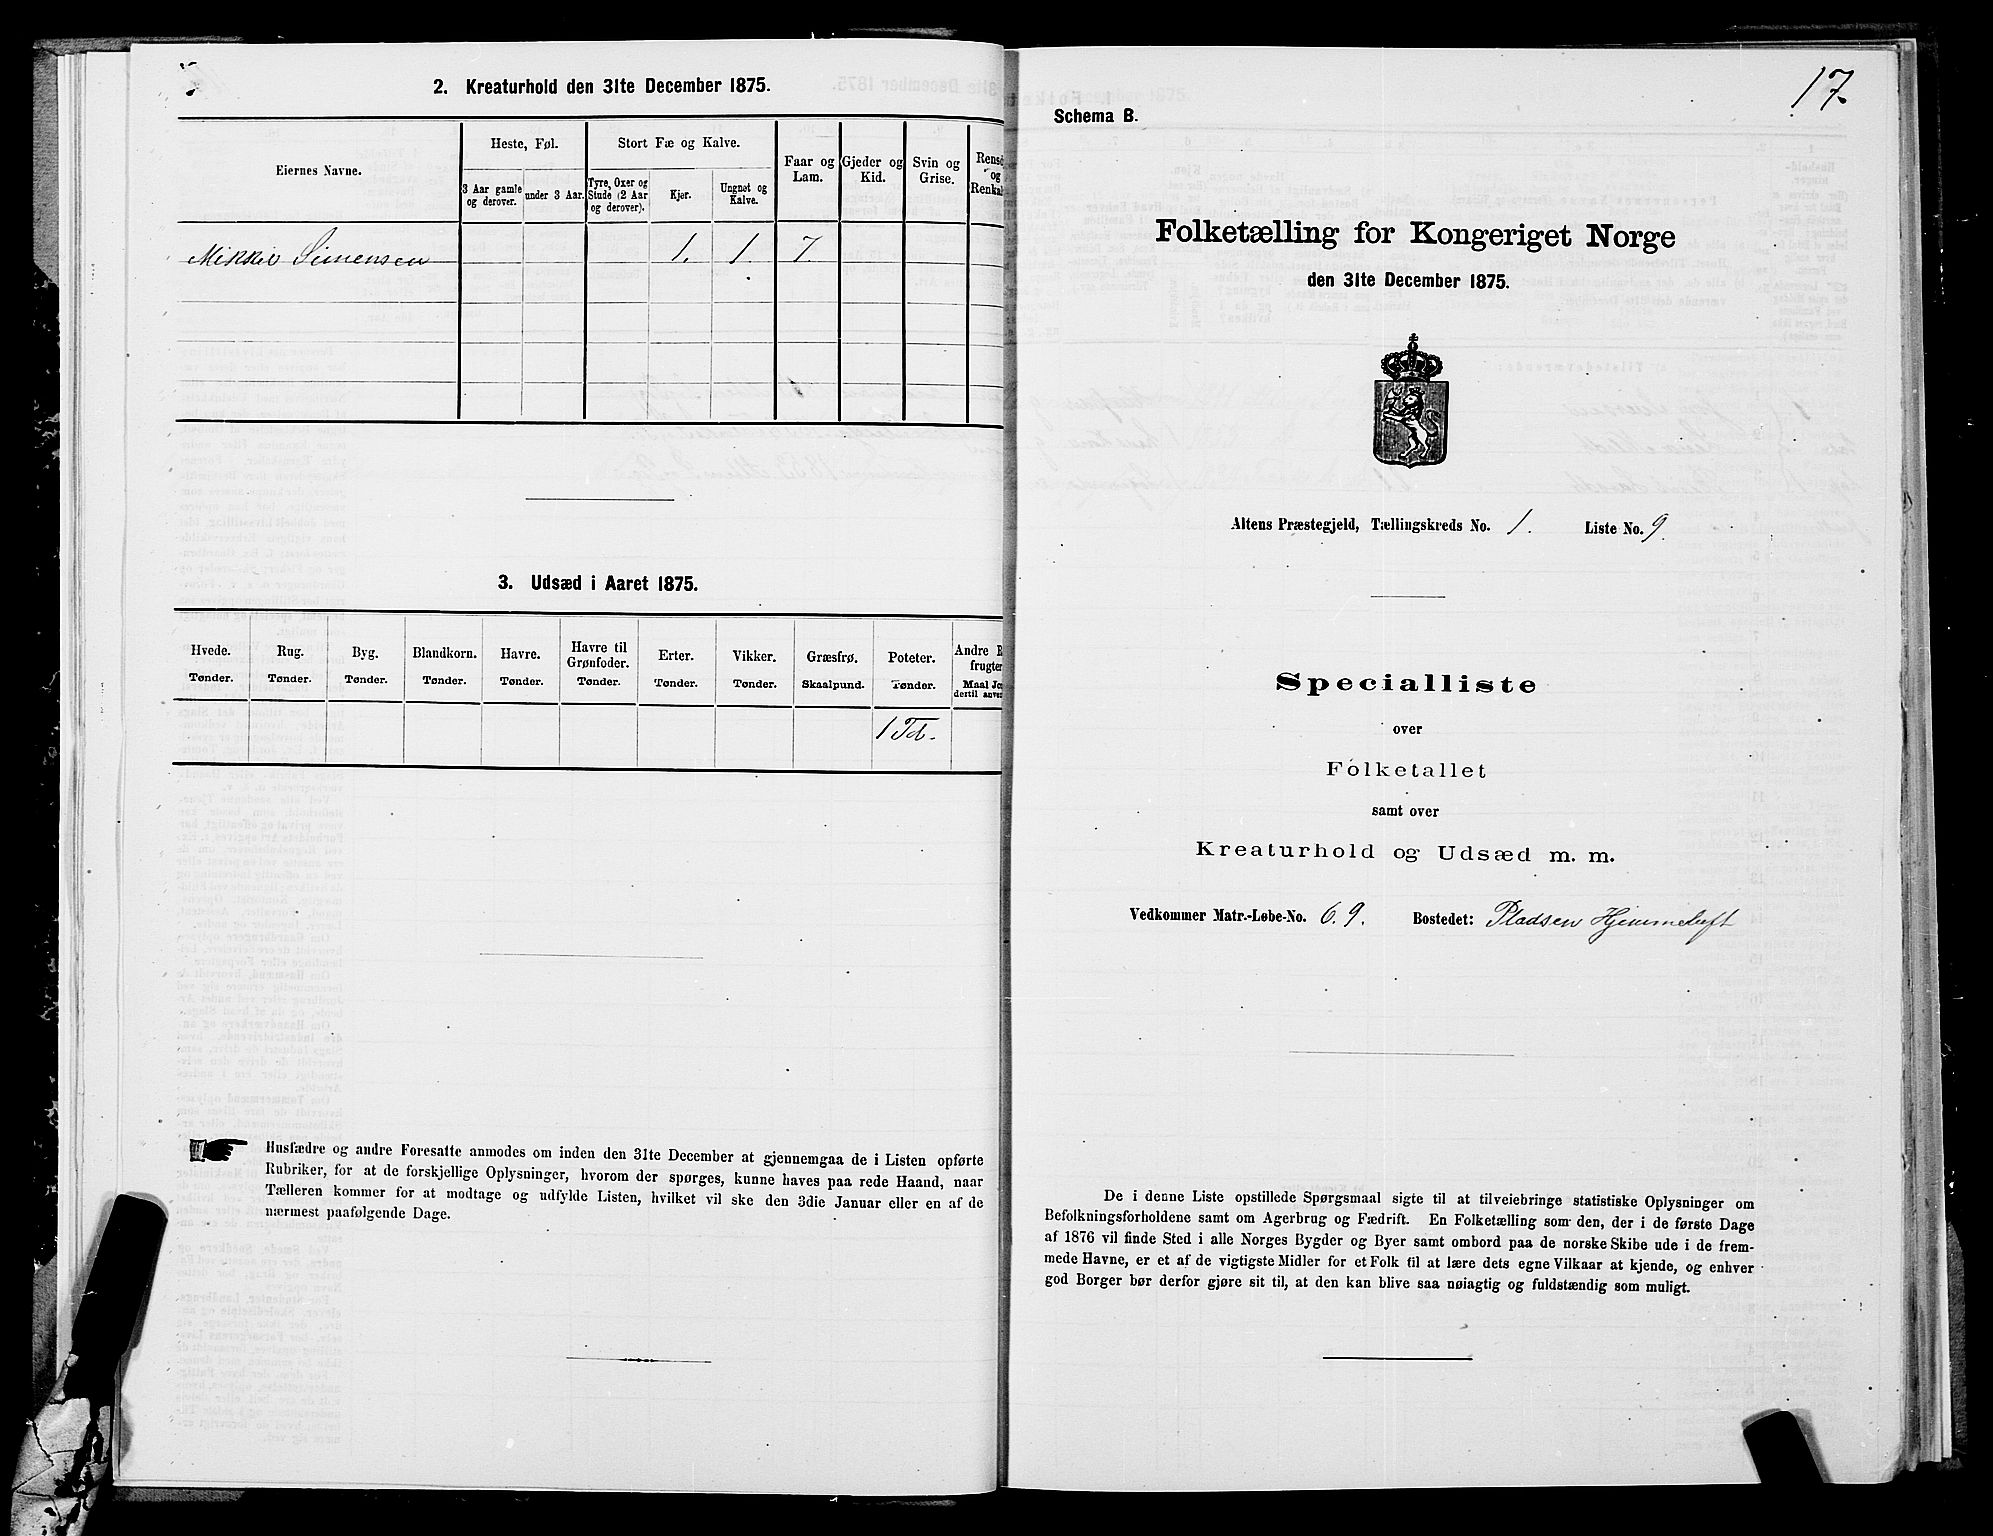 2. Kreaturhold den 31te December 1875.
Eiernes Navne.
Heste, Føl.
Stort Fæ og Kalve.
Faar og Lam.
Gjeder og Kid.
Svin og Grise.
Rensd
og
Renkal
3 Aar gamle og derover.
under 3 Aar.
Tyre, Oxer og Stude (2 Aar og derover).
Kjør.
Ungnøt og Kalve.
Mikkel Simensen 1. 1 7.
3. Udsæd i Aaret 1875.
Hvede. Tønder.
Rug. Tønder.
Byg. Tønder.
Blandkorn. Tønder.
Havre. Tønder.
Havre til Grønfoder. Tønder.
Erter. Tønder.
Vikker. Tønder.
Græsfrø. Skaalpund.
Poteter. Tønder.
Andre R
frugter
Maal Jo
dertil anv
1 Td.
Husfædre og andre Foresatte anmodes om inden den 31te December at gjennemgaa de i Listen opførte
Rubriker, for at de forskjellige Oplysninger, hvorom der spørges, kunne haves paa rede Haand, naar
Tælleren kommer for at modtage og udfylde Listen, hvilket vil ske den 3die Januar eller en af de
nærmest paafølgende Dage.
17
Schema B.
Folketælling for Kongeriget Norge
den 31te December 1875.
Altens Præstegjeld, Tællingskreds No. 1. Liste No. 9.
Specialliste
over
Folketallet
samt over
Kreaturhold og Udsæd m. m.
Vedkommer Matr.-Løbe-No. 69. Bostedet: Pladsen Hjemmeluft
De i denne Liste opstillede Spørgsmaal sigte til at tilveiebringe statistiske Oplysninger om
Befolkningsforholdene samt om Agerbrug og Fædrift. En Folketælling som den, der i de første Dage
af 1876 vil finde Sted i alle Norges Bygder og Byer samt ombord paa de norske Skibe ude i de frem-
mede Havne, er et af de vigtigste Midler for et Folk til at lære dets egne Vilkaar at kjende, og enhver
god Borger bør derfor gjøre sit til, at den kan blive saa nøiagtig og fuldstændig som muligt.